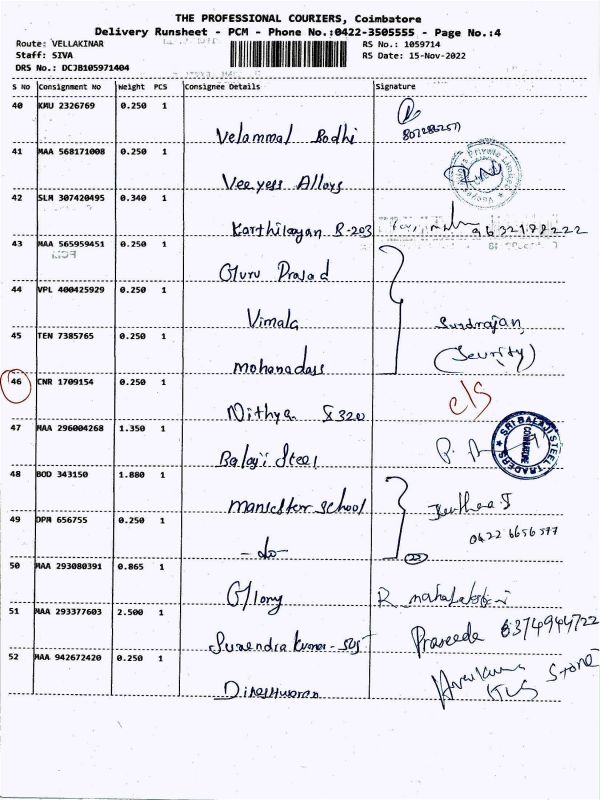 THE PROFESSIONAL COURIERS, Coimbatore
Delivery Runsheet - PCM - Phone No.:0422-3505555 - Page No.:4
Route: VELLAKINAR RS No.: 1059714
Staff: SIVA RS Date: 15-Nov-2022
DRS No.: DCJB105971404
S No Consignment No Weight PCS Consignee Details Signature
40 KMU 2326769 0.250 1
Velammal Bodhi
41 MAA 568171008 0.250 1
Veeyess Alloys
42 SLM 307420495 0.340 1
Karthikayan R-203 9632188222
43 MAA 565959451 0.250 1
Guru Prasad
44 VPL 400425929 0.250 1
Vimala Sundrajan
45 TEN 7385765 0.250 1
Mohanadass (Seurity)
46 CNR 1709154 0.250 1
Nithya S 320 C/S
47 MAA 296004268 1.350 1
SRI BALAJI STEEL TRADERS
COIMBATORE
Balaji Steel
48 BOD 343150 1.880 1
Manchster School
49 DPM 656755 0.250 1
0422 6656577
-do-
50 MAA 293080391 0.865 1
51 MAA 293377603 2.500 1
Surendra Kumar Praseeda 6374944722
52 MAA 942672420 0.250 1
Stone
Dineshwaran